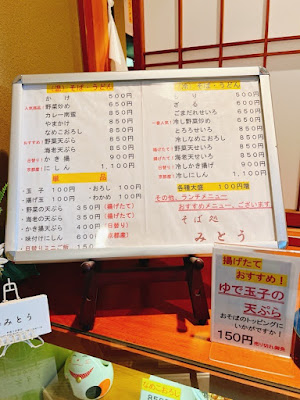 （温）そば・うどん
かけ 500円
人気商品 野菜炒め 850円
カレー南蛮 850円
やまかけ 850円
なめこおろし 850円
おすすめ! 野菜天ぷら 850円
海老天ぷら 850円
日替り! かき揚 900円
京都産! にしん 1,100円
単品
・玉子 100円 ・おろし 100円
・揚げ玉 100円 ・わかめ 100円
・野菜の天ぷら 350円 (揚げたて)
・海老の天ぷら 350円 (揚げたて)
・かき揚天ぷら 400円 (日替り)
・味付けにしん 600円 (京都産)
・日替りミニご飯 150円
そば・うどん
もり 500円
ざる 600円
ごまだれせいろ 650円
冷し野菜炒め 850円
とろろせいろ 850円
冷しなめこおろし 850円
野菜天せいろ 850円
海老天せいろ 850円
冷しかき揚げ 900円
冷しにしん 1,100円
各種大盛 100円増
その他、ランチメニュー
おすすめメニュー、ございます。
そば処
みとう
揚げたて
おすすめ!
ゆで玉子の
天ぷら
おそばのトッピングに
いかがですか!
150円 売り切れ御免
みとう
なめこおろし